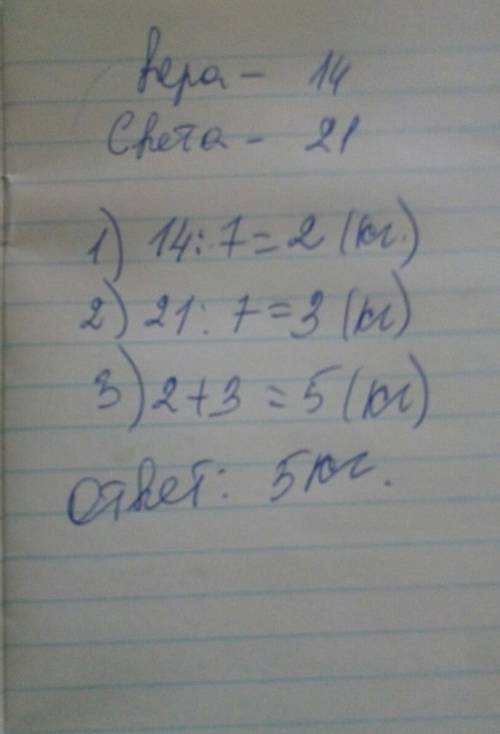 Вера - 14
Света - 21
1) 14:7=2 (кг.)
2) 21:7=3 (кг)
3) 2+3=5 (кг)
Ответ: 5кг.